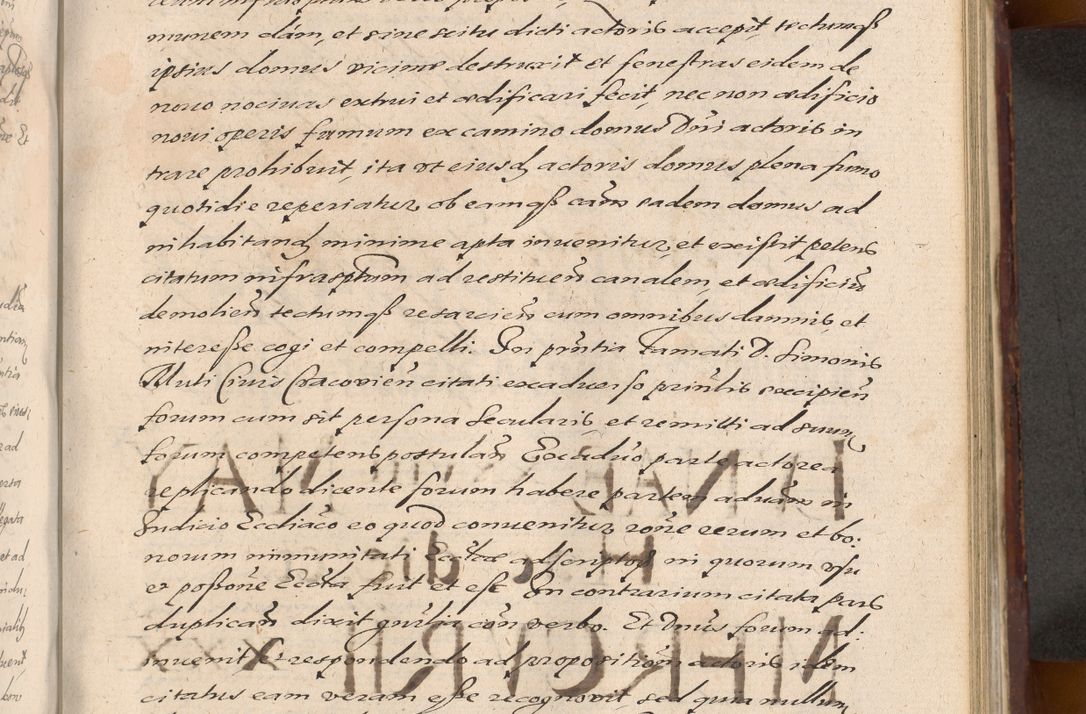 munem dām, et sine scitu dicti actoris accepit, tectumqȝ
ipsius domus vicinæ destruxit et fenestras eidem de
nouo nociuas extrui et ædificari fecit, nec non ædificio
noui operis fumum ex camino domus Dni actoris in
trare prohibuit, ita vt eiusd actoris domus plena fumo
quotidie reperiatur, ob eamqȝ cām eadem domus ad
inhabitand minime apta inuenitur, et existit petens
citatum infrascptum ad restituen canalem, et ædificiū
demolien tectumqȝ resarcien cum omnibus damnis et
interesse cogi et compelli. In pntia famati D. Simonis
Muti Ciuis Cracouien citati ex aduerso prinlis excipien
forum cum sit persona secularis, et remitti ad suum
forum competens postulan Ex aduo parte actorea
replicando dicente forum habere partem aduām in
Iudicio Ecclīaco eo quod conuenitur rōne rerum et bo:
norum immunitati Ecclæ adscriptoȝ in quorum vsu
et possōne Eccla fuit et est In contrarium citata pars
duplican dixit gnlia cōn verbo. Et Dnus forum ad:
inuenit, et respondendo ad propositiōm actoris idem
citatus eam veram esse recognouit, sed quia nullum